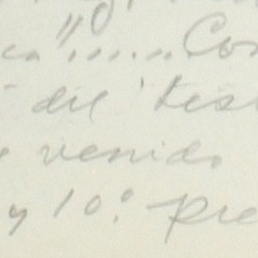 "..... Con
del tes
venido
y 10° pre